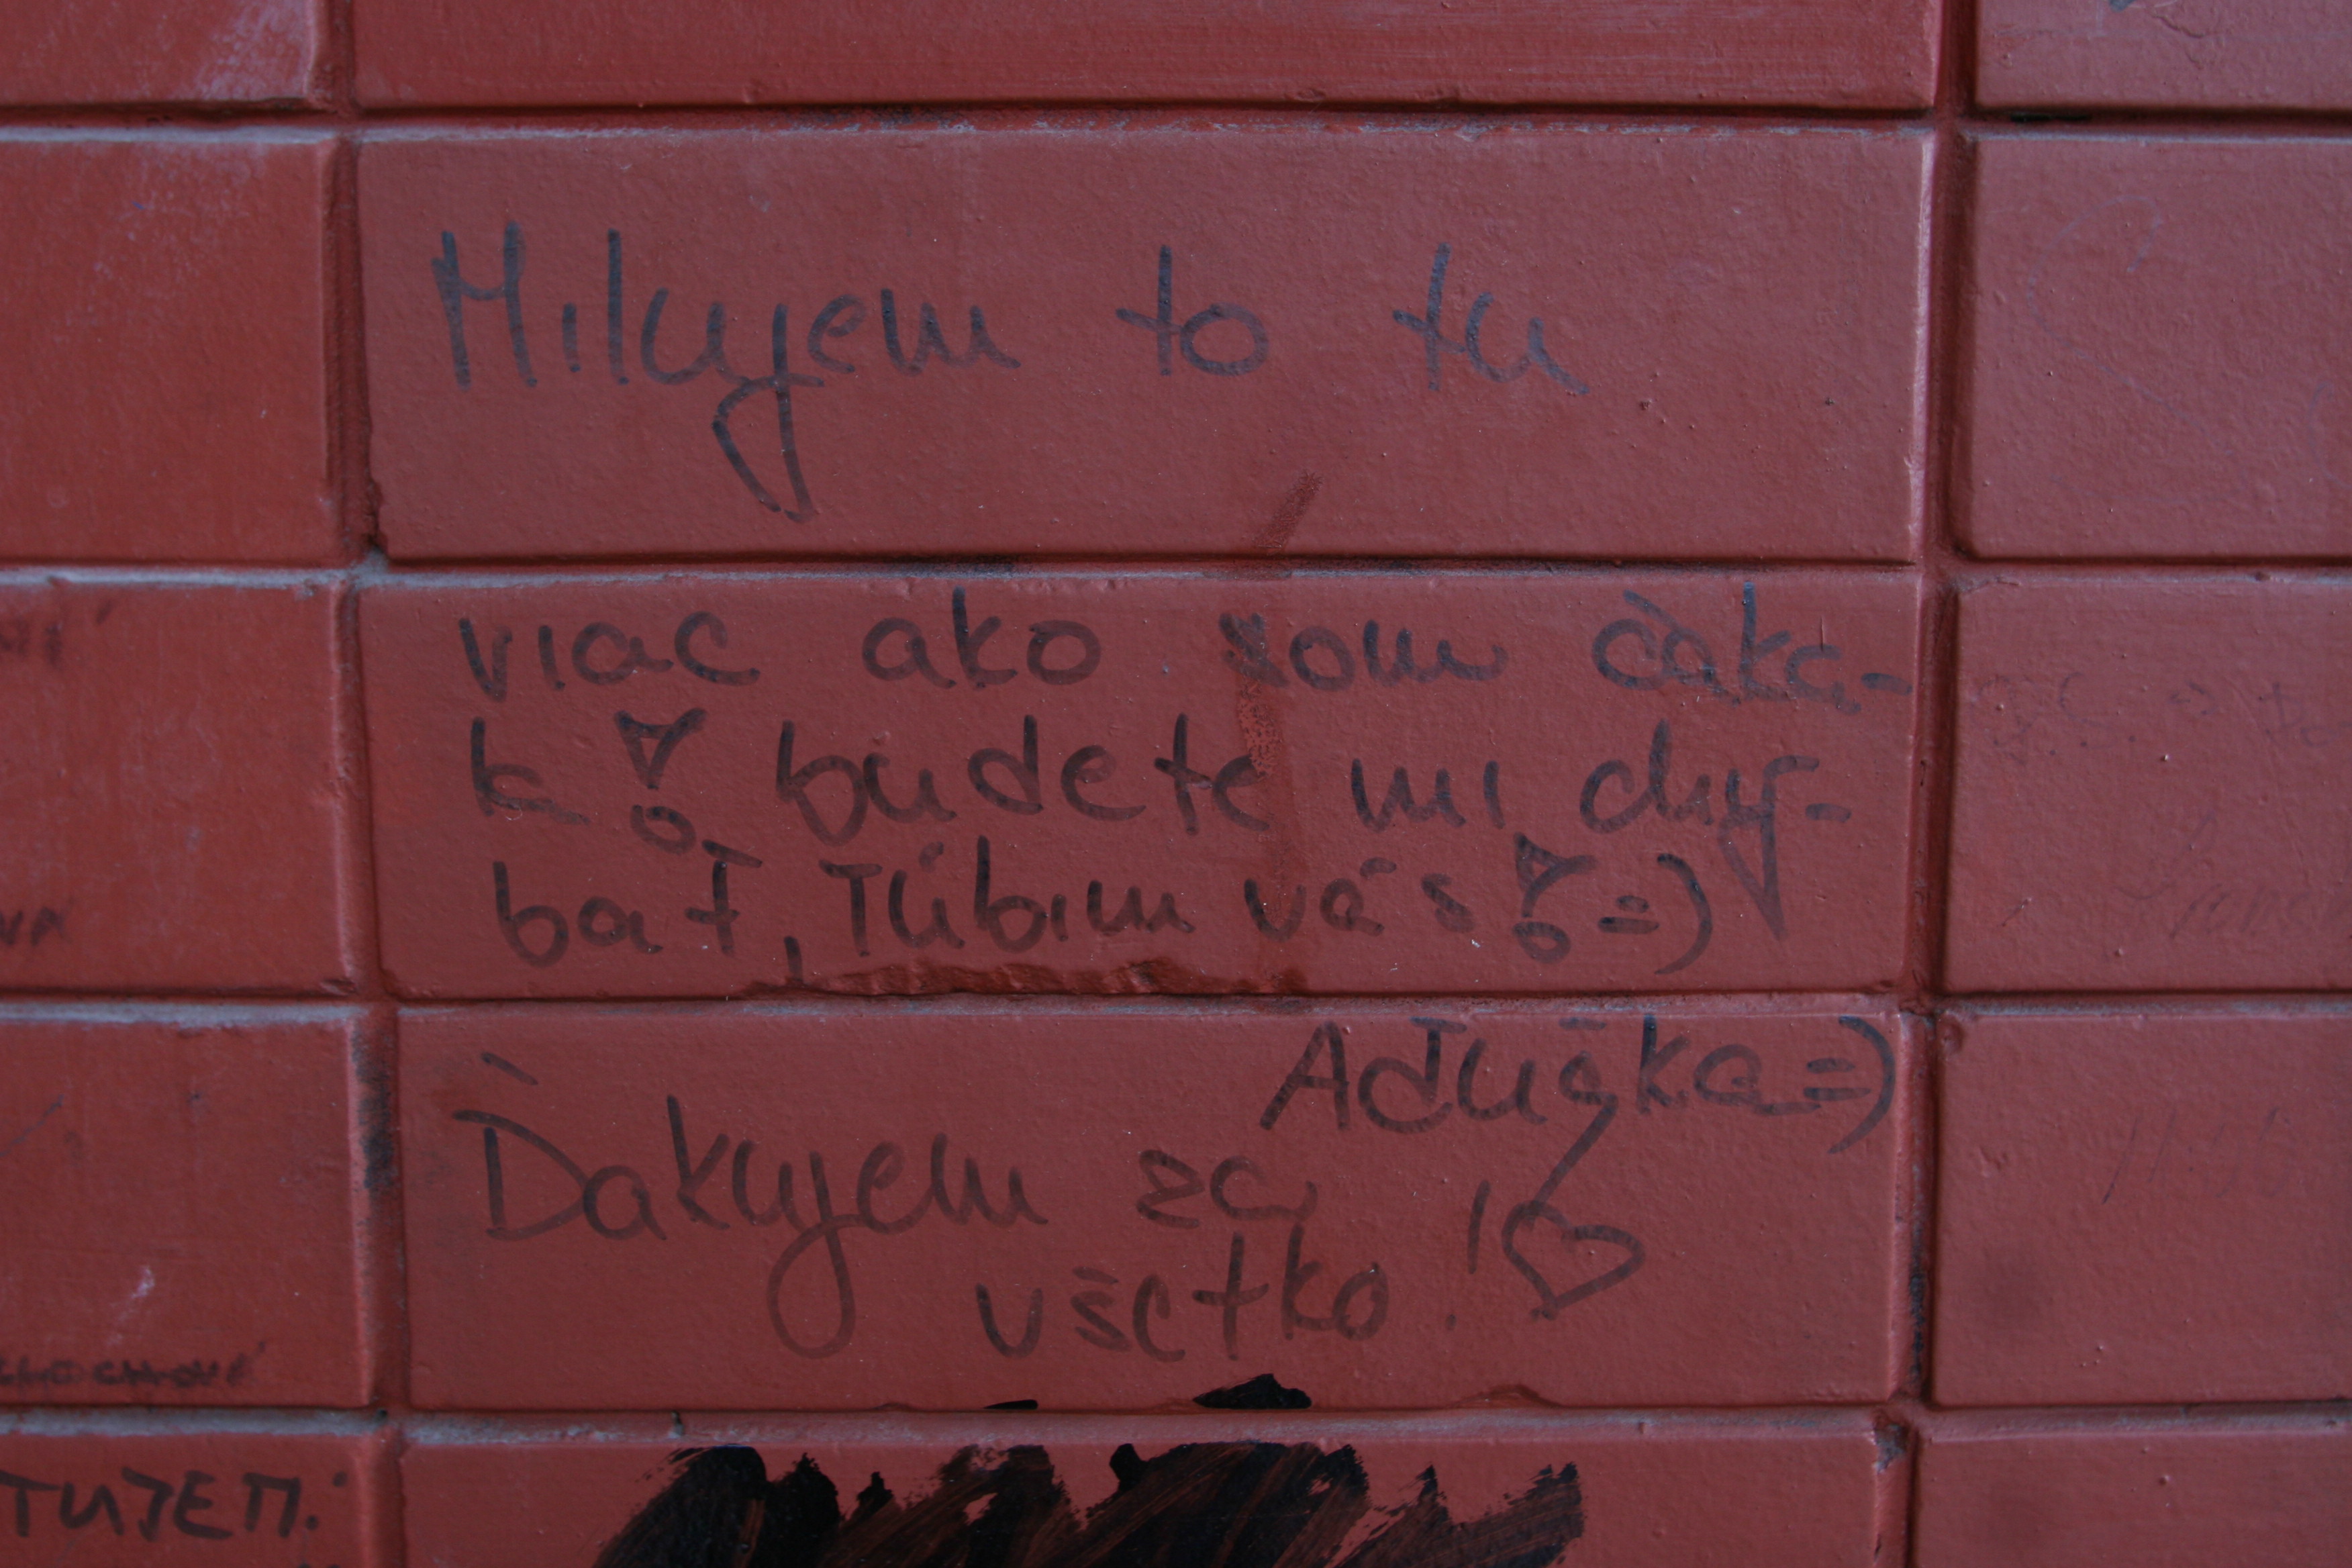 Milujem to tu
viac ako som čaka-
la! budete mi chý-
bať, ľúbim vás! =)
Aďuška =)
Ďakujem za
všetko! ♡
TUJEM: